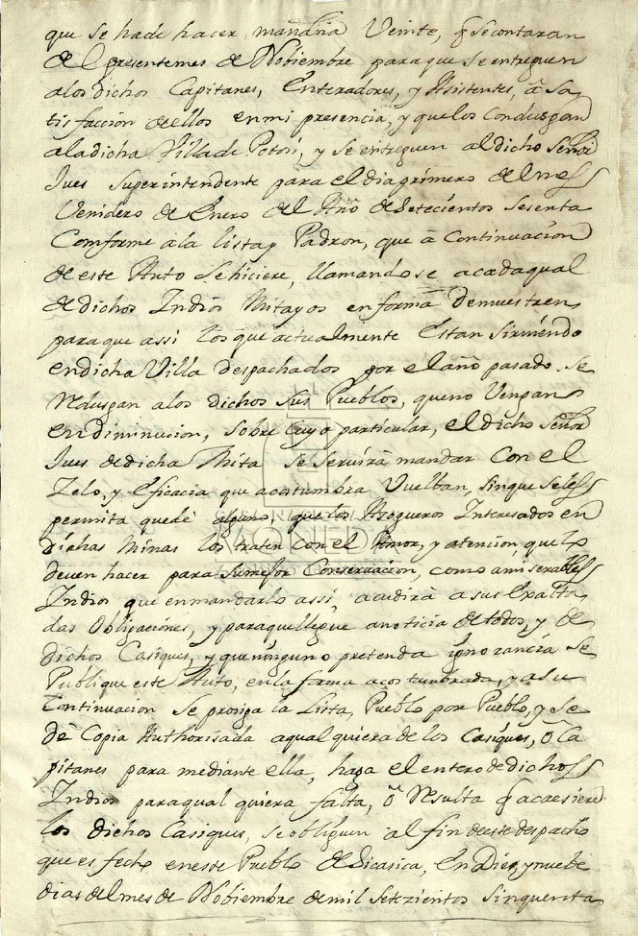 que se hade hacer mañana Veinte, q̃ se contaran
del presente mes de Nobiembre para que se entreguen
a los dichos Capitanes, Enteradores, y Asistentes, â sa
tisfaccion de ellos en mi presencia, y que los condusgan
a la dicha Villa de Potosi, y se entreguen al dicho Señor
Jues Superintendente para el dia primero del mes
Venidero de Enero del Año de Setecientos Sesenta
Comforme a la lista y Padron, que â Continuacion
de este Auto Se hiciere, llamandose a cada qual
de dichos Indios Mitayos en forma de muestren
para que assi los que actualmente Estan Sirviendo
en dicha Villa despachados por el año pasado. Se
Redusgan a los dichos Sus Pueblos, que no Vengan
en diminucion, Sobre Cuyo particular, el dicho Señor
Jues de dicha Mita Se Servirâ mandar Con el
Zelo, y Eficacia que acostumbra Vuelban, sin que Seles
permita quede alguno, que los Asogueros Interesados en
dichas Minas los traten con el Amor, y atencion, que lo
deven hacer para Su mejor Conservacion, como a miserables
Indios que en mandarlo assi, acudirâ a sus Exalta
das Obligaciones, y para que llegue a noticia de todos, y de
dichos Casiques, y que ninguno pretenda ignorancia Se
Publique este Auto, en la forma acostumbrada, y a su
Continuacion Se prosiga la Lista, Pueblo por Pueblo, y Se
dê Copia Authorisada a qual quiera de los Casiques, ô Ca
pitanes para mediante ella, haga el entero de dichos
Indios para qual quiera falta, ô Resulta q̃ acaesiere
los dichos Casiques, se obliguen al fin de este despacho
que es fecho en este Pueblo de Sicasica, en Diez y nuebe
dias del mes de Nobiembre de mil Setezientos Sinquenta